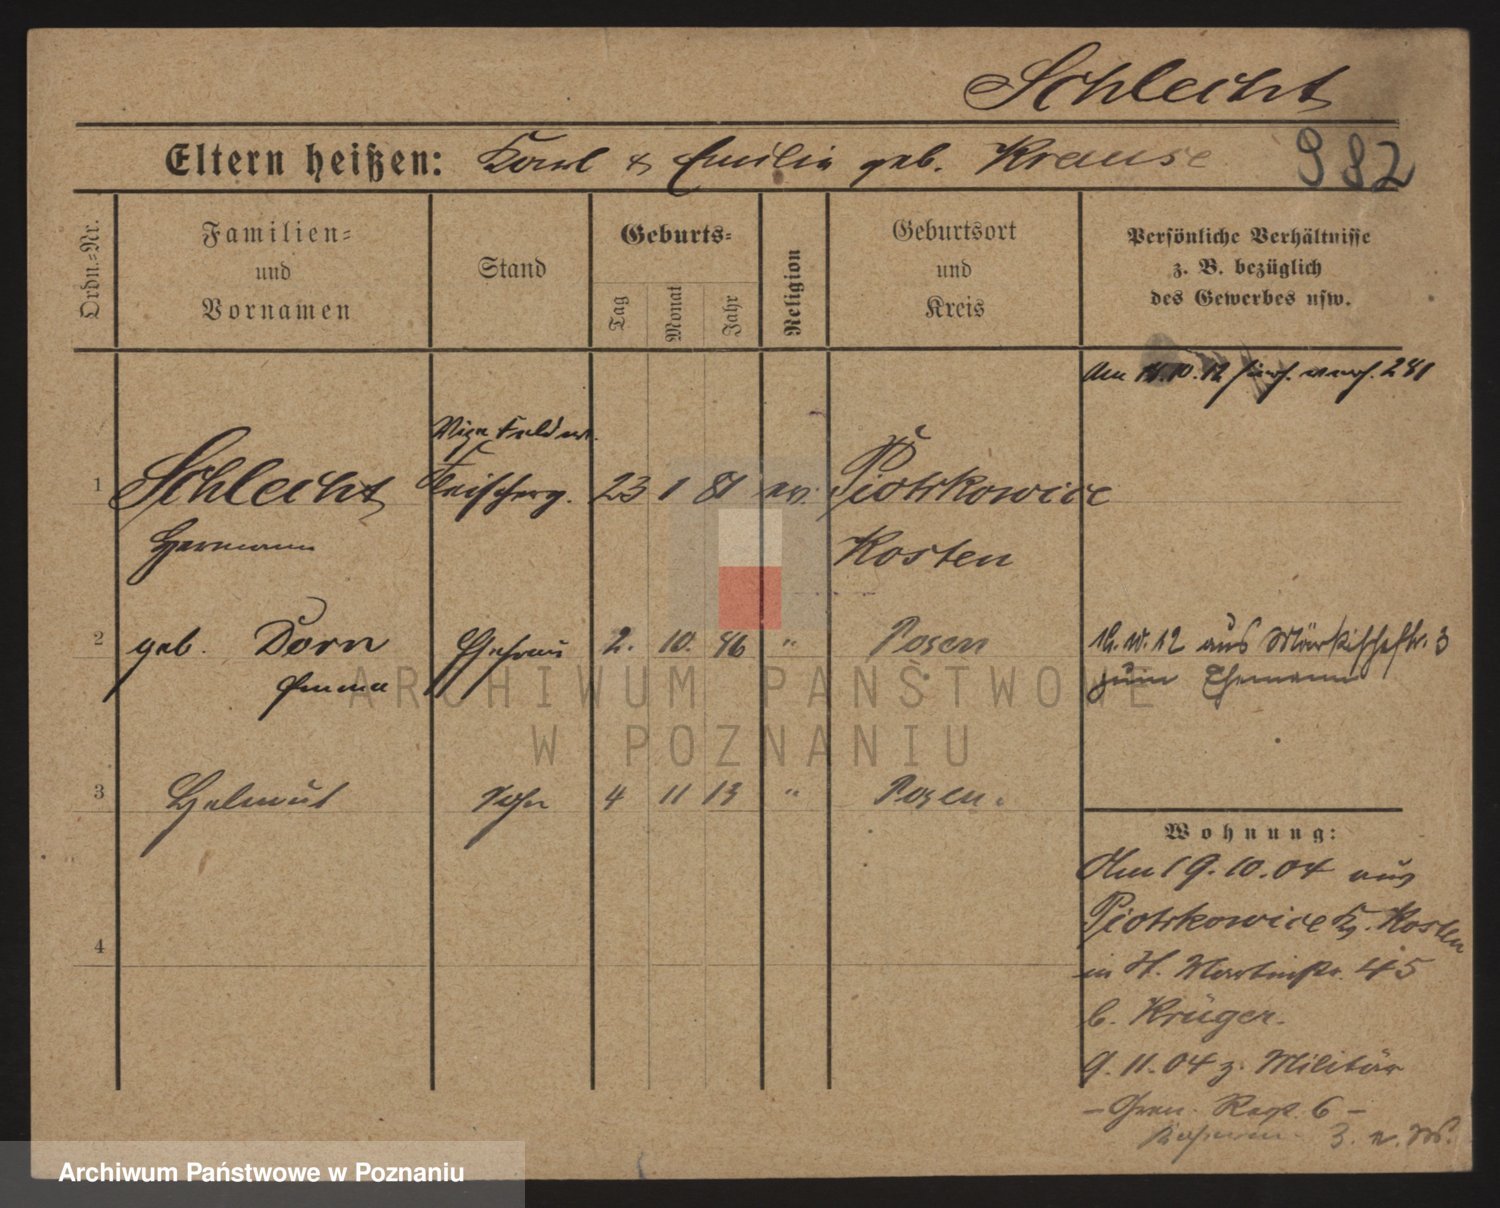 Schlecht
Eltern heißen: Karl & Emilie geb. Krause 982
Ordn.=Nr.
Familien=
und
Vornamen
Stand
Geburts=
Tag
Monat
Jahr
Religion
Geburtsort
und
Kreis
Persönliche Verhältnisse
z. B. bezüglich
des Gewerbes usw.
Am 10.12 281
Vize Feldw.
1 Schlecht Fleischerg. 23 1 81 ev. Piotrkowice
Hermann Kosten
2 geb. Dorn Ehefrau 2. 10. " Posen 12 aus Märkischestr. 3
Emma zum Ehemann
3 Helmut Sohn 4 11 13 " Posen.
Wohnung:
Am 19.10.04 aus
4 Piotrkowice Kr. Kosten
in St. Martinstr. 45
b. Krüger.
9.11.04 z. Militär
– Gren. Regt. 6 –
ARCHIWUM PAŃSTWOWE
W POZNANIU
Archiwum Państwowe w Poznaniu